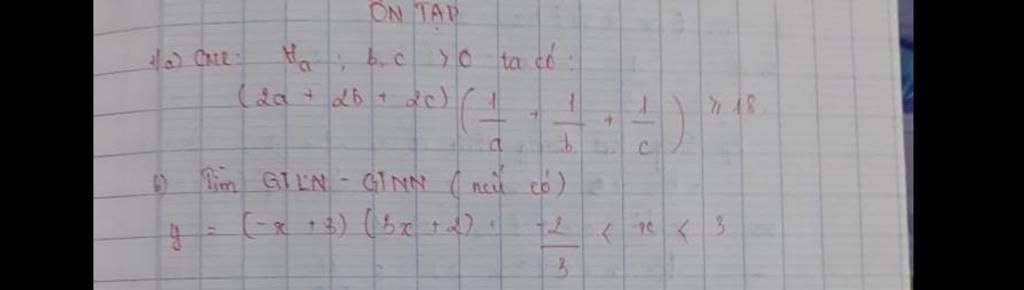 ÔN TẬP
1/a) CMR: ∀a; b, c > 0 ta có:
(2a + 2b + 2c) (1/a + 1/b + 1/c) ≥ 18
b) Tìm GTLN - GTNN (nếu có)
y = (-x + 3) (3x + 2) . -2/3 < x < 3